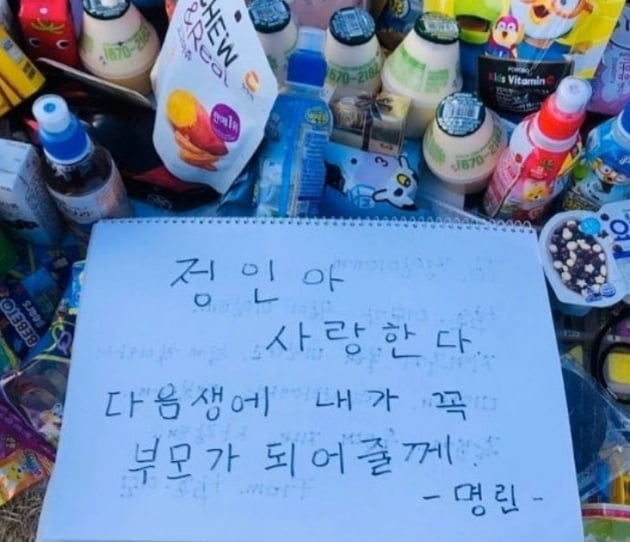 CHEW
& Real
판매 1위
Kids Vitamin C
BEBETO
정인아
사랑한다
다음생에 내가 꼭
부모가 되어줄께.
- 명린 -